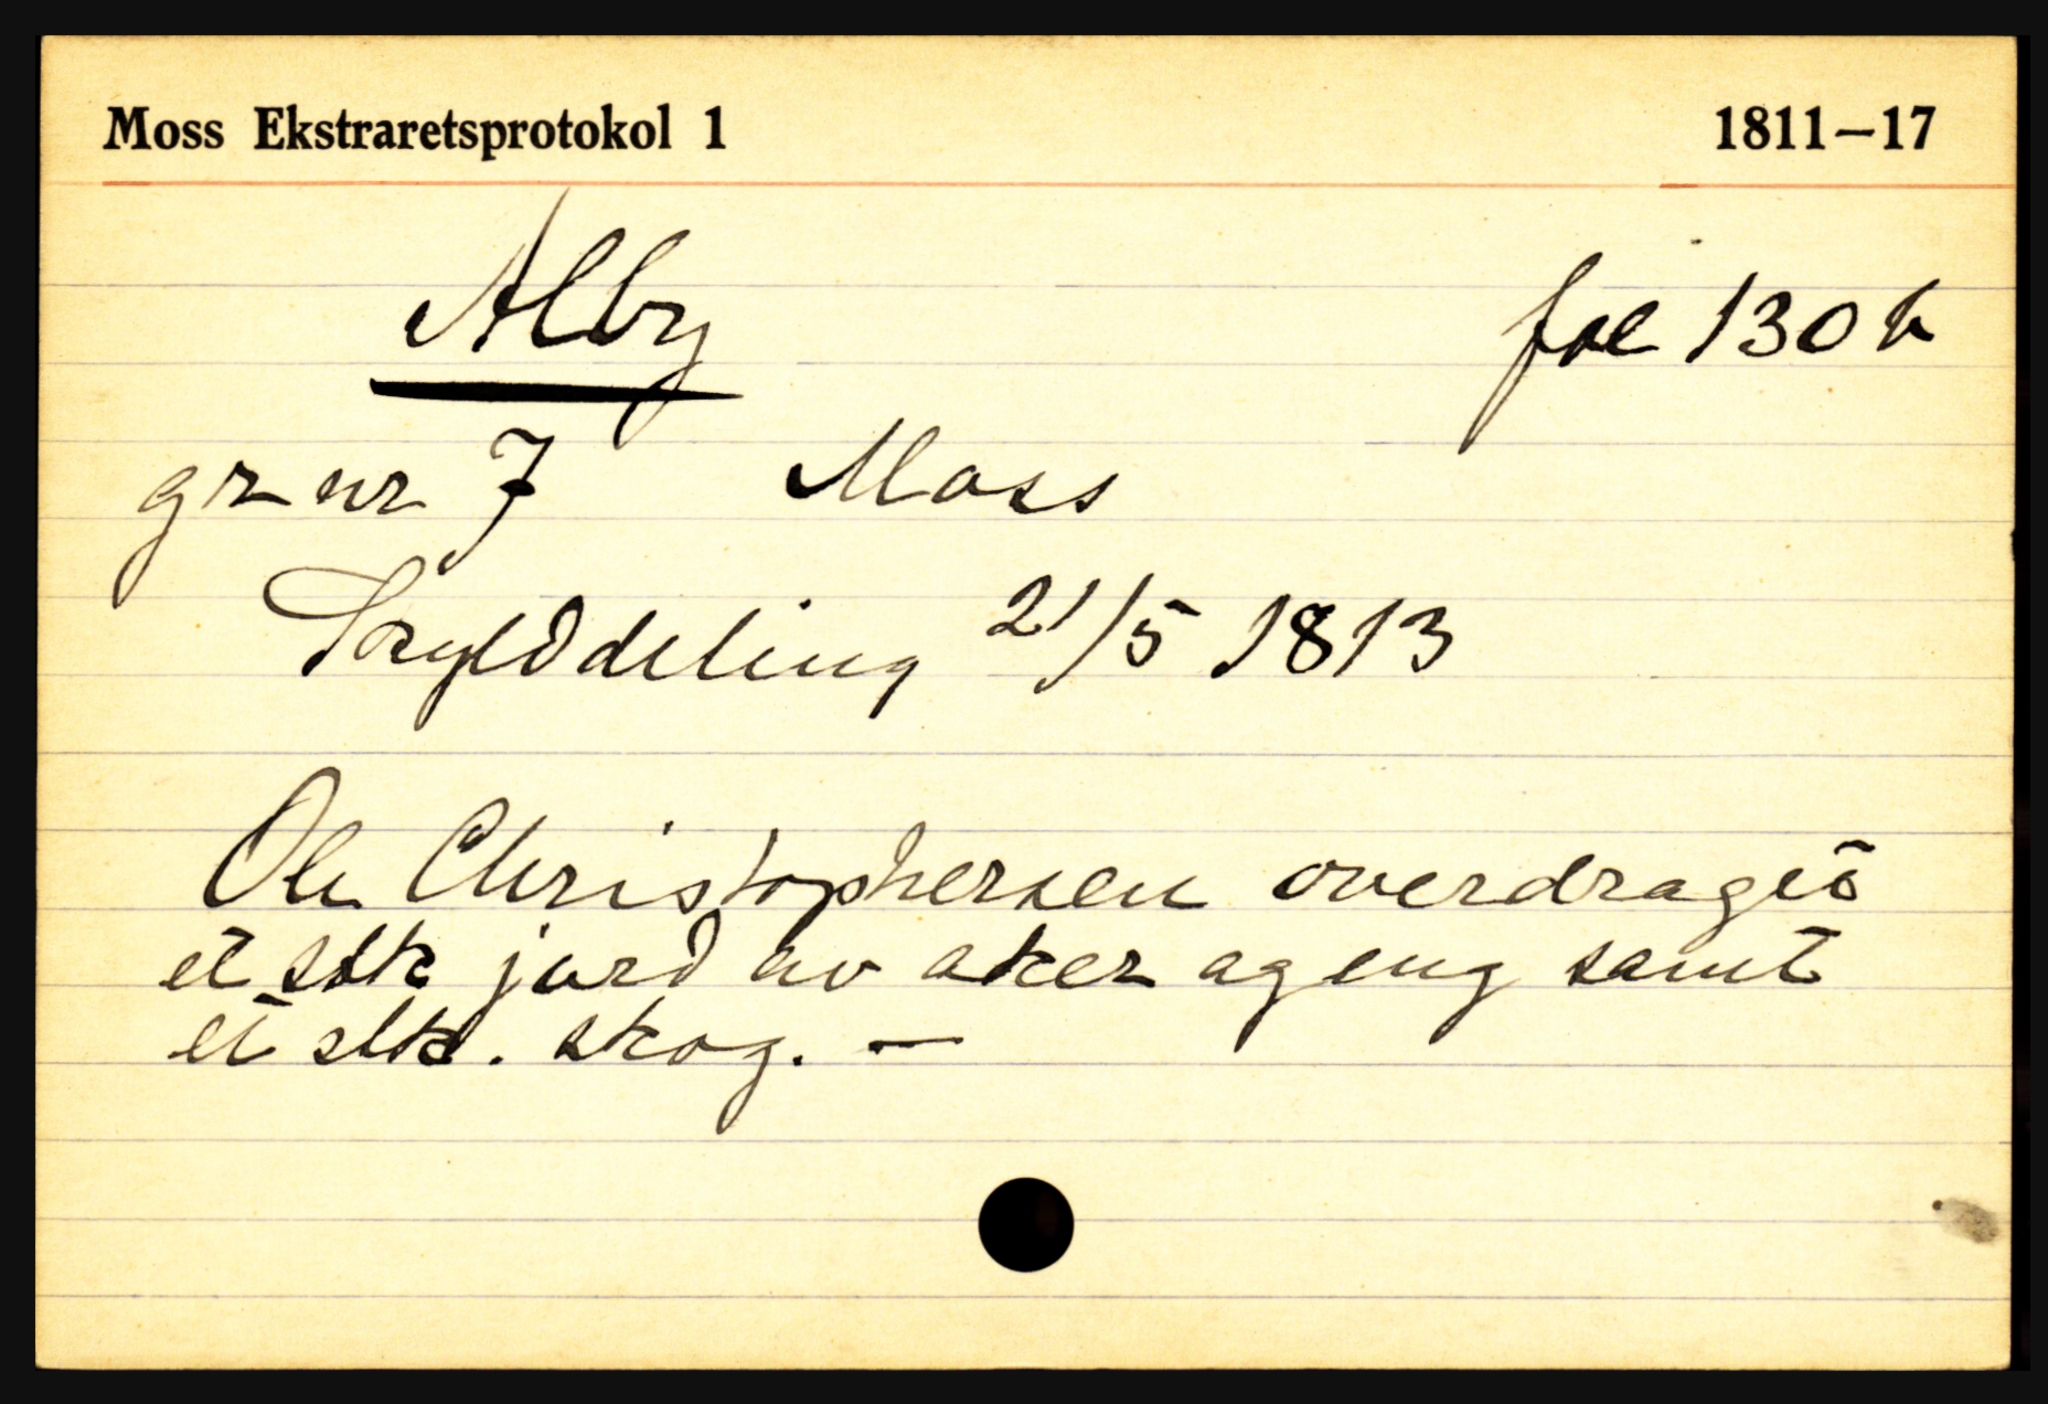 Moss Ekstraretsprotokol 1 1811–17
Alby fol 130 b
gr nr 7 Moss
Skylddeling 21/5 1813
Ole Christophersen overdrages
et stk jord av aker og eng samt
et stk. skog. —